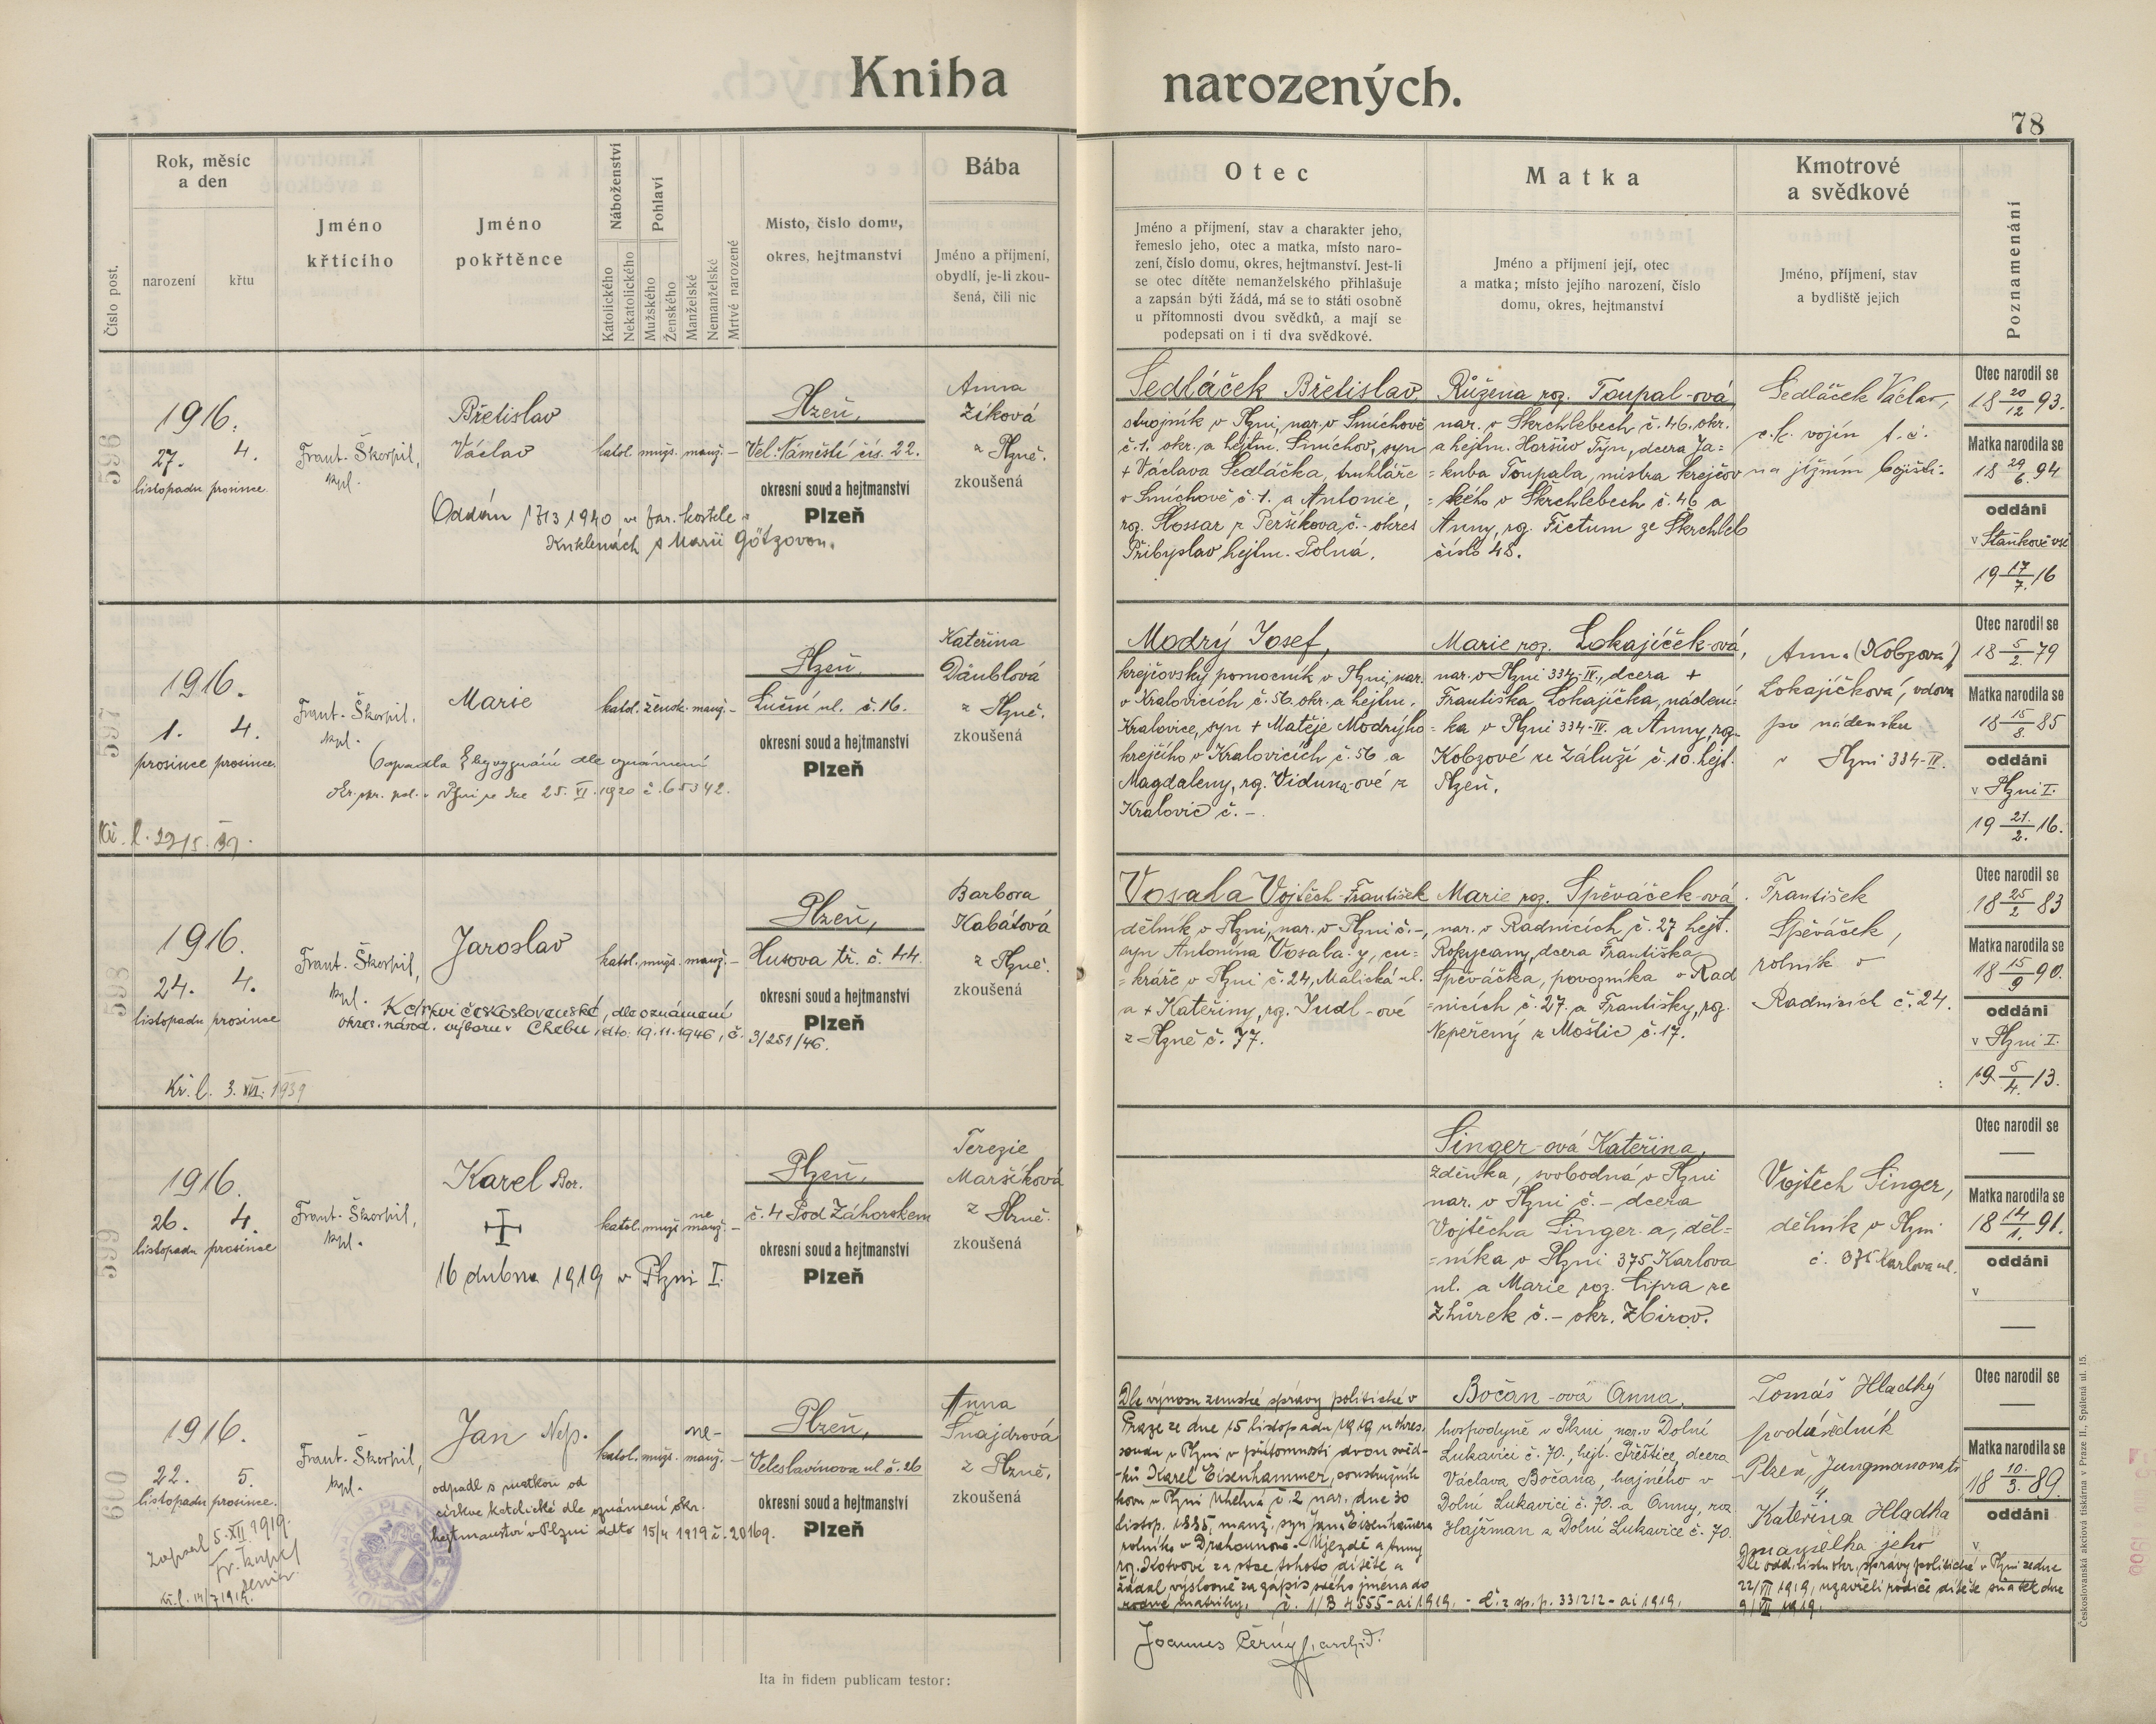 Kniha narozených.
78
Číslo post.
Rok, měsíc
a den
narození
křtu
Jméno
křtícího
Jméno
pokřtěnce
Náboženství
Katolického
Nekatolického
Pohlaví
Mužského
Ženského
Manželské
Nemanželské
Mrtvě narozené
Místo, číslo domu,
okres, hejtmanství
Bába
Jméno a příjmení,
obydlí, je-li zkou-
šená, čili nic
Otec
Jméno a příjmení, stav a charakter jeho,
řemeslo jeho, otec a matka, místo naro-
zení, číslo domu, okres, hejtmanství. Jest-li
se otec dítěte nemanželského přihlašuje
a zapsán býti žádá, má se to státi osobně
u přítomnosti dvou svědků, a mají se
podepsati on i ti dva svědkové.
Matka
Jméno a příjmení její, otec
a matka; místo jejího narození, číslo
domu, okres, hejtmanství
Kmotrové
a svědkové
Jméno, příjmení, stav
a bydliště jejich
Poznamenání
596
1916.
27. 4.
listopadu prosince.
Frant. Škorpil,
kpl.
Břetislav
Václav
katol. mužs. manž. –
Oddán 17/3 1940 ve far. kostele v
Kuklenách s Marií Götzovou.
Plzeň,
Vel. Náměstí čís. 22.
okresní soud a hejtmanství
Plzeň
Anna
Zíková
z Plzně.
zkoušená
Sedláček Břetislav,
strojník v Plzni, nar. v Smíchově
č. 1. okr. a hejtm. Smíchov, syn
+ Václava Sedláčka, truhláře
v Smíchově č. 1. a Antonie,
roz. Hossar z Peršíkova, č. - okres
Přibyslav hejtm. Polná.
Růžena roz. Toupal-ová,
nar. v Skrchlebech č. 46. okr.
a hejtm. Horšův Týn, dcera Ja=
=kuba Toupala, mistra krejčov
=ského v Skrchlebech č. 46 a
Anny, roz. Fictum ze Skrchleb
číslo 48.
Sedláček Václav,
c. k. vojín t. č.
na jižním bojišti.
Otec narodil se
18 20/12 93.
Matka narodila se
18 29/6 94
oddáni
v Staňkově vsi
19 17/7 16
597
1916.
1. 4.
prosince prosince.
Kř. l. 22/5. 39.
Frant. Škorpil,
kpl.
Marie
katol. žensk. manž. –
Odpadla bez vyznání dle oznámení
Okr. spr. pol. v Plzni ze dne 25. VI. 1920 č. 65342.
Plzeň,
Luční ul. č. 16.
okresní soud a hejtmanství
Plzeň
Kateřina
Däublová
z Plzně.
zkoušená
Modrý Josef,
krejčovský pomocník v Plzni, nar.
v Kralovicích č. 56 okr. a hejtm.
Kralovice, syn + Matěje Modrýho
krejčího v Kralovicích č. 56 a
Magdaleny, roz. Viduna-ové z
Kralovic č. –.
Marie roz. Lokajíček-ová,
nar. v Plzni 334-IV., dcera +
Františka Lokajíčka, nádení=
=ka v Plzni 334-IV. a Anny, roz.
Kobzové ze Záluží č. 10. hejt.
Plzeň.
Anna (Kobzova)
Lokajíčková, vdova
po nádeníku
v Plzni 334-IV.
Otec narodil se
18 5/2. 79
Matka narodila se
18 15/8. 85
oddáni
v Plzni I.
19 21./2. 16.
598
1916.
24. 4.
listopadu prosince
Kř. l. 3. VII. 1939
Frant. Škorpil,
kpl.
Jaroslav
katol. mužs. manž. –
K církvi československé, dle oznámení
okres. národ. výboru v Chebu, dto. 19.11.1946, č. 3/251/46.
Plzeň,
Husova tř. č. 44.
okresní soud a hejtmanství
Plzeň
Barbora
Kabátová
z Plzně.
zkoušená
Vosala Vojtěch František
dělník v Plzni, nar. v Plzni č. –,
syn Antonína Vosala-y, cu=
=kráře v Plzni č. 24, Malická ul.
a + Kateřiny, roz. Judl-ové
z Plzně č. 77.
Marie roz. Spěváček-ová
nar. v Radnicích č. 27 hejt.
Rokycany, dcera Františka
Spěváčka, povozníka v Rad
=nicích č. 27. a Františky, roz.
Nepeřený z Moštic č. 17.
František
Spěváček,
rolník v
Radnicích č. 24.
Otec narodil se
18 25/2 83
Matka narodila se
18 15/9 90.
oddáni
v Plzni I.
19 5/4. 13.
599
1916.
26. 4.
listopadu prosince
Frant. Škorpil,
kpl.
Karel Bor.
16 dubna 1919 v Plzni I.
katol. mužs. ne manž. –
Plzeň,
č. 4 Pod Záhorskem
okresní soud a hejtmanství
Plzeň
Terezie
Maršíková
z Plzně.
zkoušená
Singer-ová Kateřina,
Zdeňka, svobodná v Plzni
nar. v Plzni č. – dcera
Vojtěcha Singer-a, děl=
=níka v Plzni 375 Karlova
ul. a Marie roz. Cipra ze
Zhůrek č. – okr. Zbirov.
Vojtěch Singer,
dělník v Plzni
č. 375 Karlova ul.
Otec narodil se
—
Matka narodila se
18 14/1. 91.
oddáni
v
—
600
1916.
22. 5.
listopadu prosince.
zapsal 5. XII 1919.
Fr. Škorpil
Kř. l. 14/7 1919.
Frant. Škorpil,
kpl.
Jan Nep.
katol. mužs. ne- manž. –
odpadl s matkou od
církve katolické dle oznámení okr.
hejtmanství v Plzni ddto 15/4 1919 č. 20169.
Plzeň,
Veleslavínova ul. č. 26
okresní soud a hejtmanství
Plzeň
Anna
Šnajdrová
z Plzně.
zkoušená
Dle výnosu zemské správy politické v
Praze ze dne 15 listopadu 1919 u okres.
soudu v Plzni v přítomnosti dvou svěd-
-ků Karel Eisenhammer, soustružník
kovu v Plzni Uhelná č. 2 nar. dne 30
listop. 1885, manž. syn Jana Eisenhamera
rolníka v Drahounově-Újezdě a Anny
roz. Kotrové za otce tohoto dítěte a
žádal výslovně za zápis svého jména do
rodné matriky. č. 1/B 4555-ai 1919. - č. z sp. p. 331212-ai 1919.
Joannes Černý, archid.
Bočan-ová Anna,
hospodyně v Plzni, nar. v Dolní
Lukavici č. 70., hejt. Přeštice, dcera
Václava Bočana, hajného v
Dolní Lukavici č. 70. a Anny, roz
Hajžman z Dolní Lukavice č. 70.
Tomáš Hladký
podúředník
Plzeň, Jungmanova tř
4.
Kateřina Hladká
manželka jeho
Dle odd. listu okr. správy politické v Plzni ze dne
22/VII 1919, uzavřeli rodiče dítěte sňatek dne
9/VII 1919.
Otec narodil se
—
Matka narodila se
18 10./3. 89.
oddáni
v
Ita in fidem publicam testor:
Československá akciová tiskárna v Praze II., Spálená ul. 15.